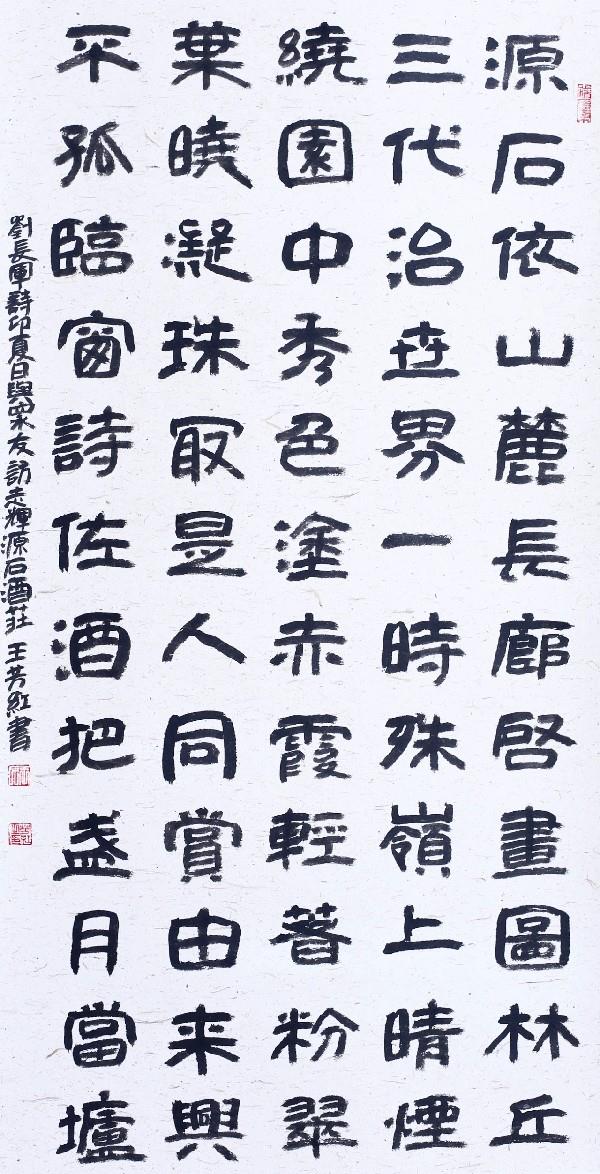 源石依山麓長廊啓畫圖林丘
三代治世界一時殊嶺上晴煙
繞園中秀色塗赤霞輕著粉翠
葉曉凝珠取是人同賞由来興
不孤臨窗詩佐酒把盞月當壚
劉長軍詩印夏日與眾友訪志輝源石酒莊 王芳紅書